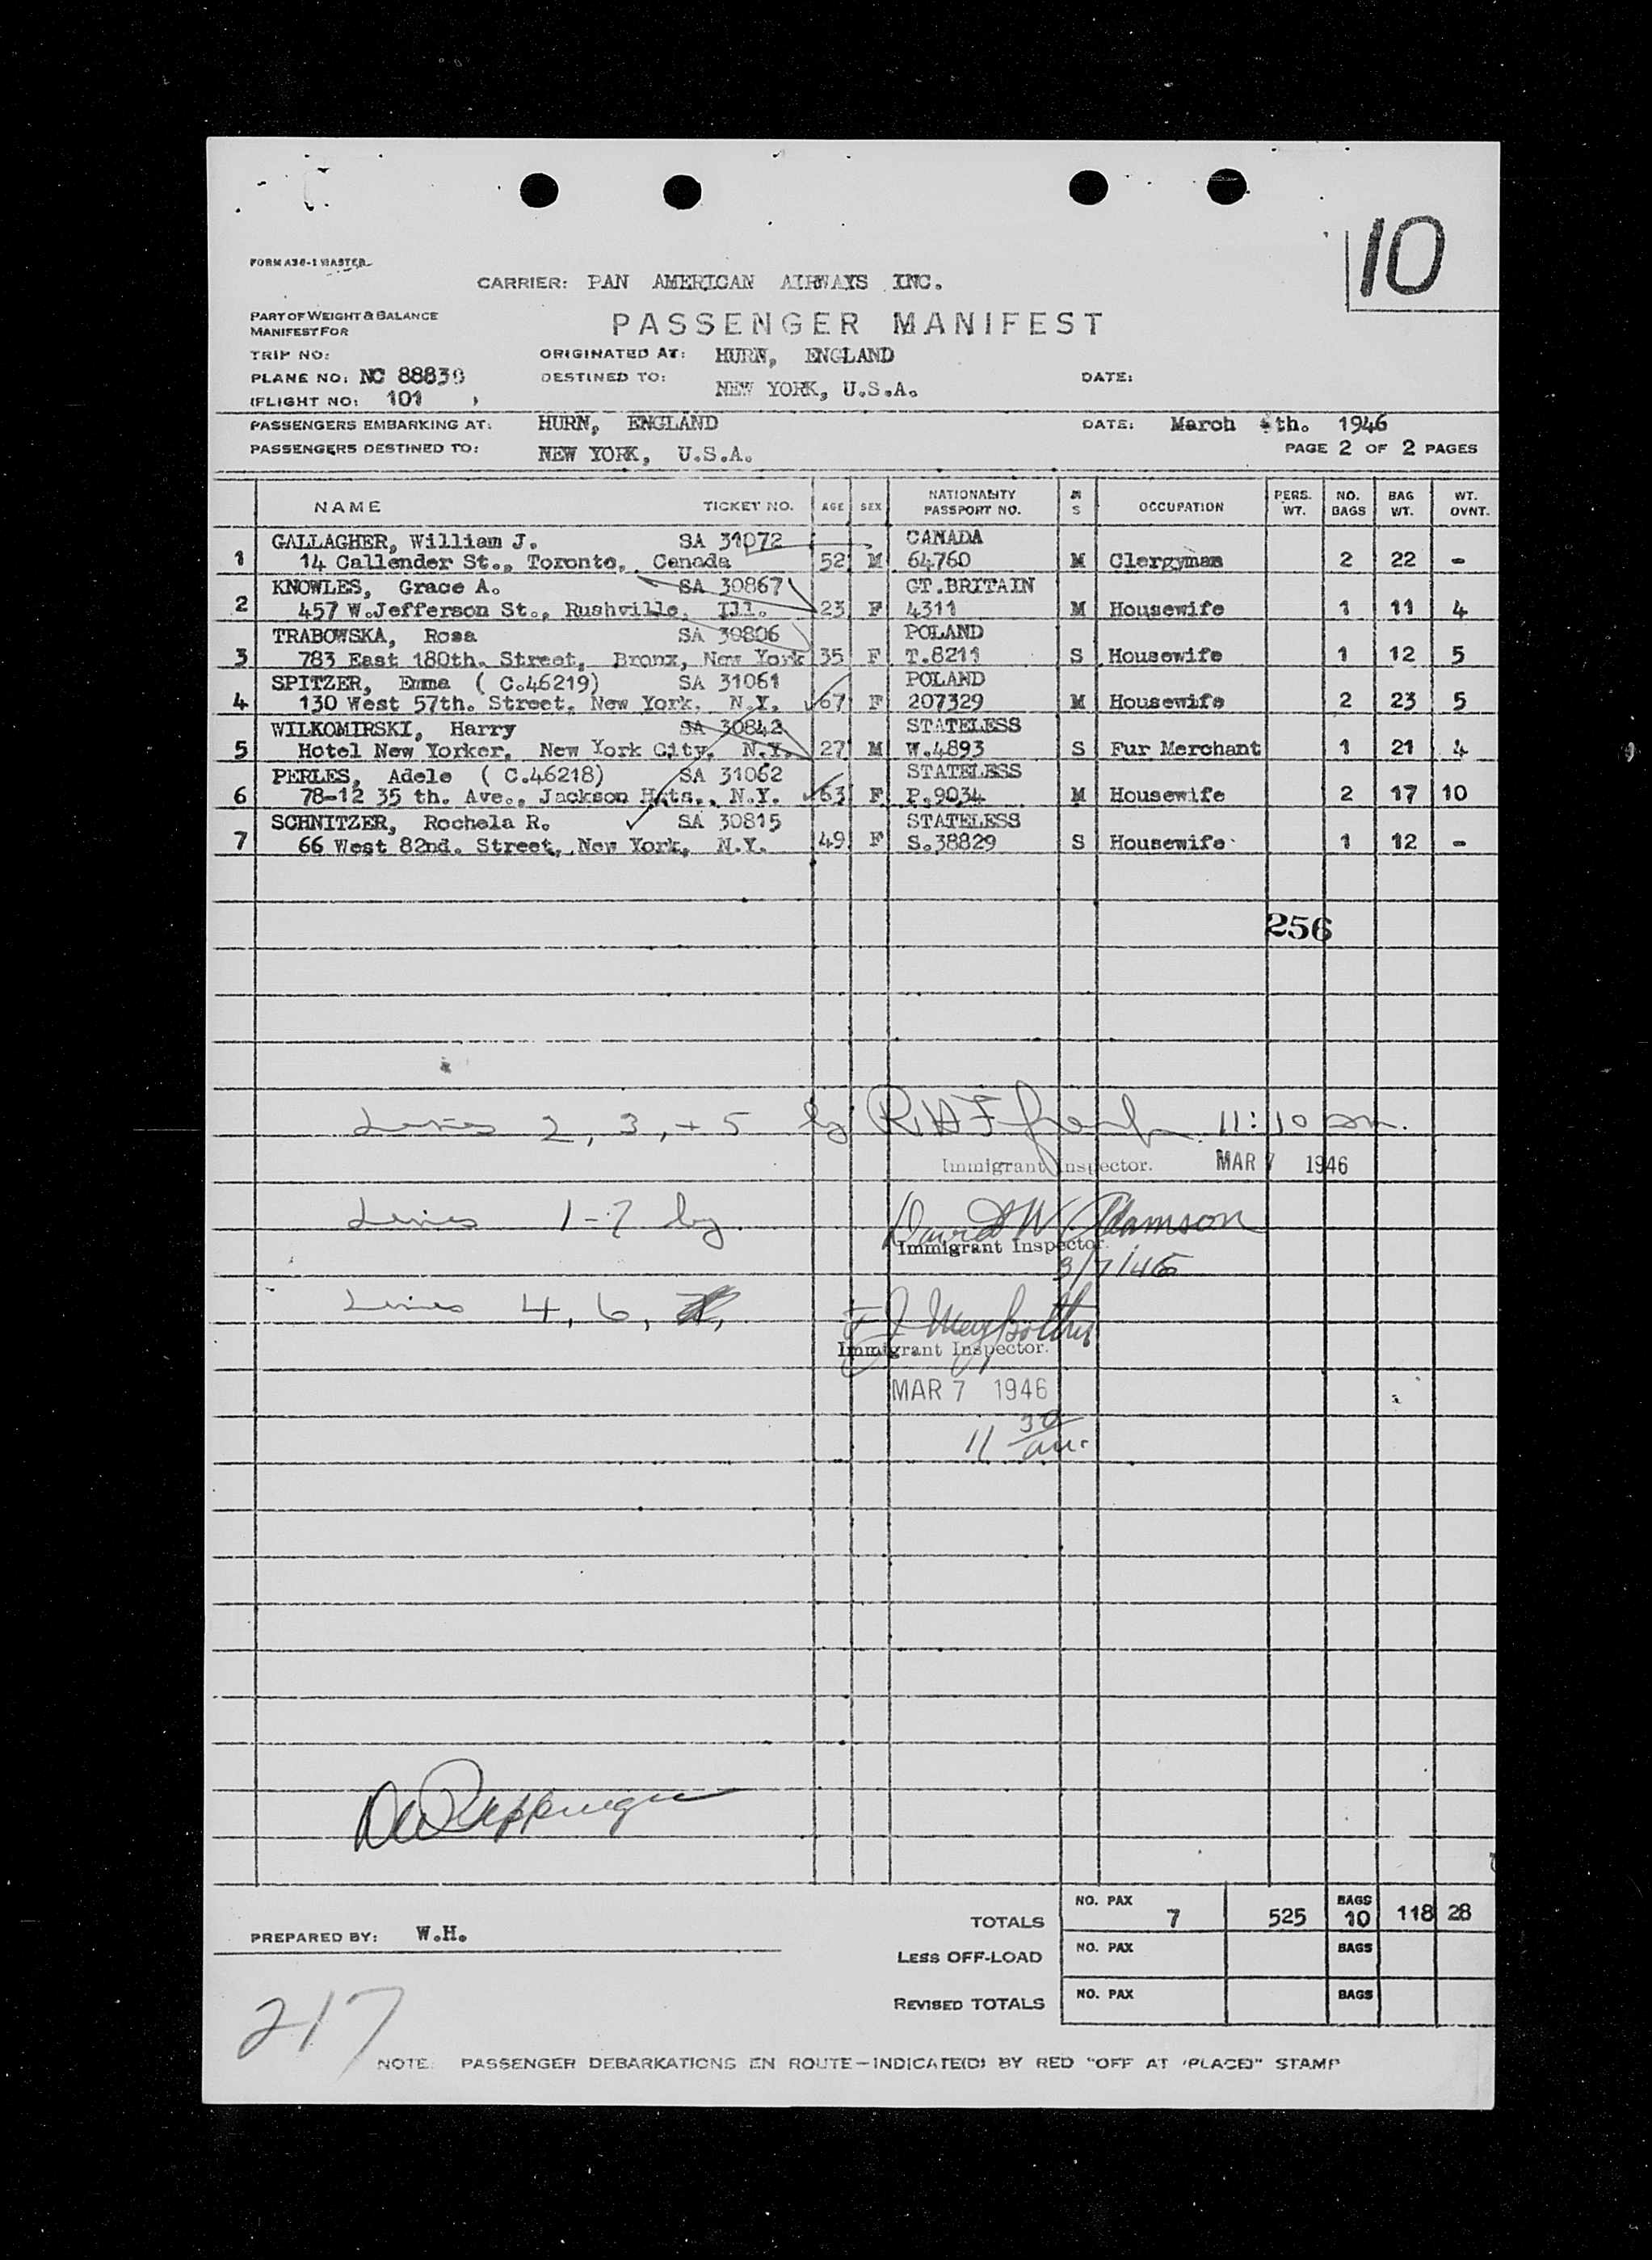 10
FORM A30-1 MASTER
CARRIER: PAN AMERICAN AIRWAYS INC.
PART OF WEIGHT & BALANCE
MANIFEST FOR
PASSENGER MANIFEST
TRIP NO:
ORIGINATED AT: HURN, ENGLAND
PLANE NO: NC 88830
DESTINED TO: NEW YORK, U.S.A.
DATE:
(FLIGHT NO: 101 )
PASSENGERS EMBARKING AT: HURN, ENGLAND DATE: March th. 1946
PASSENGERS DESTINED TO: NEW YORK, U.S.A. PAGE 2 OF 2 PAGES
NAME TICKET NO. AGE SEX NATIONALITY PASSPORT NO. M S OCCUPATION PERS. WT. NO. BAGS BAG WT. WT. OVNT.
GALLAGHER, William J. SA 31072 CANADA
1 14 Callender St., Toronto, Canada 52 M 64760 M Clergyman 2 22 -
KNOWLES, Grace A. SA 30867 GT.BRITAIN
2 457 W.Jefferson St., Rushville, Ill. 23 F 4311 M Housewife 1 11 4
TRABOWSKA, Rosa SA 30806 POLAND
3 783 East 180th. Street, Bronx, New York 35 F T.8211 S Housewife 1 12 5
SPITZER, Emma ( C.46219) SA 31061 POLAND
4 130 West 57th. Street, New York, N.Y. 67 F 207329 M Housewife 2 23 5
WILKOMIRSKI, Harry SA 30842 STATELESS
5 Hotel New Yorker, New York City, N.Y. 27 M W.4893 S Fur Merchant 1 21 4
PERLES, Adele ( C.46218) SA 31062 STATELESS
6 78-12 35 th. Ave., Jackson Hts., N.Y. 63 F P.9034 M Housewife 2 17 10
SCHNITZER, Rochela R. SA 30815 STATELESS
7 66 West 82nd. Street, New York, N.Y. 49 F S.38829 S Housewife 1 12 -
256
Lines 2, 3, + 5 by 11:10 am.
Immigrant Inspector. MAR 7 1946
Lines 1-7 by David W Adamson
Immigrant Inspector.
3/7/46
Lines 4, 6,
Immigrant Inspector.
MAR 7 1946
11 30 am.
TOTALS NO. PAX 7 525 BAGS 10 118 28
PREPARED BY: W.H.
LESS OFF-LOAD NO. PAX BAGS
REVISED TOTALS NO. PAX BAGS
217
NOTE: PASSENGER DEBARKATIONS EN ROUTE—INDICATE(D) BY RED "OFF AT (PLACE)" STAMP